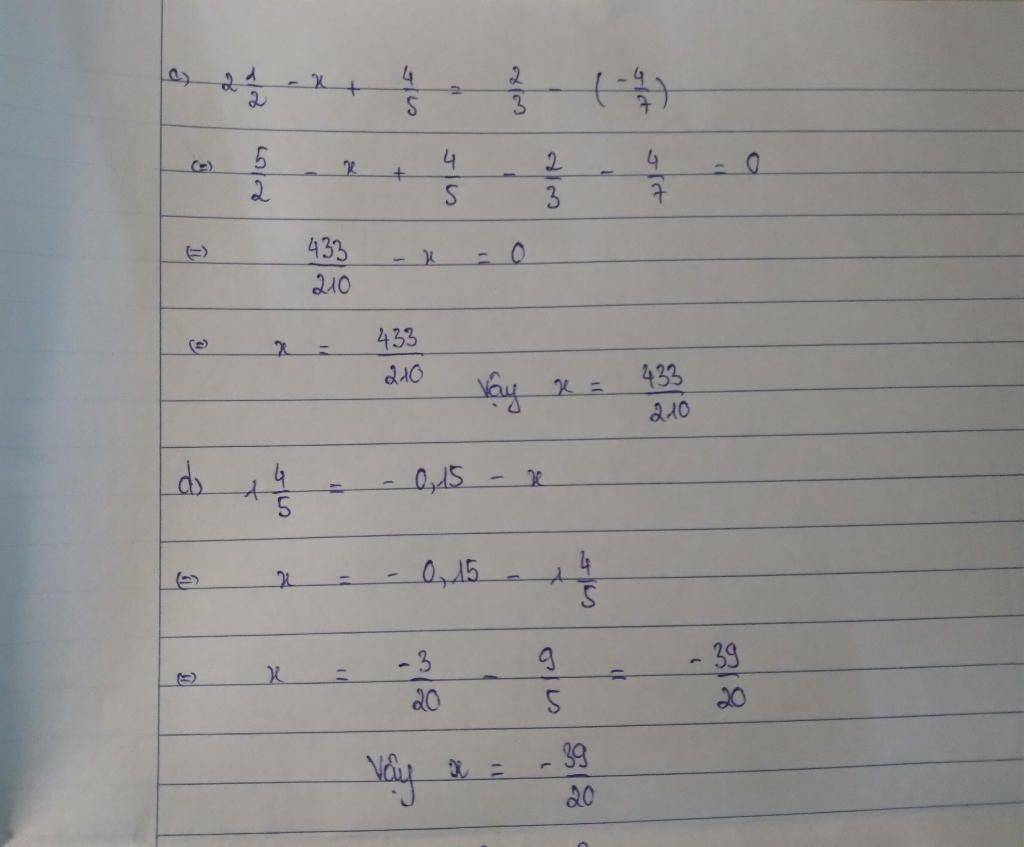 c) 2 1/2 - x + 4/5 = 2/3 - (-4/7)
(=) 5/2 - x + 4/5 - 2/3 - 4/7 = 0
(=) 433/210 - x = 0
(=) x = 433/210
Vậy x = 433/210
d) 1 4/5 = - 0,15 - x
(=) x = - 0,15 - 1 4/5
(=) x = -3/20 - 9/5 = -39/20
Vậy x = -39/20